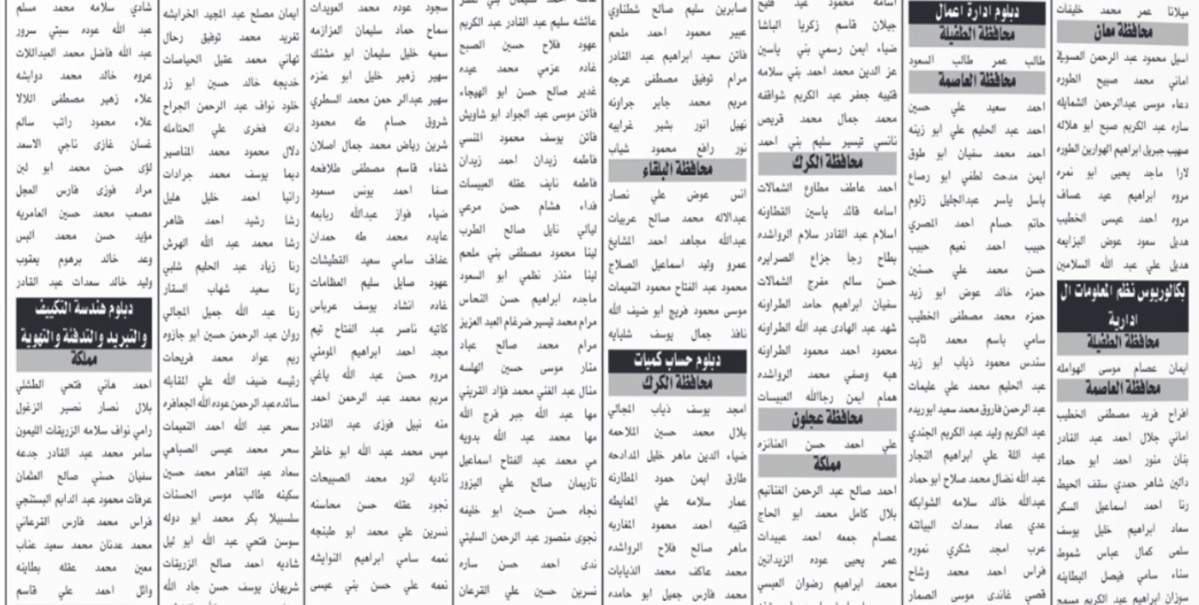 ميلانا عمر محمد خليفات
محافظة معان
اسيل محمود عبد الرحمن
اماني محمد صبيح الطوره
دعاء موسى عبدالرحمن الشمايله
ساره عبد الكريم صبح ابو هلاله
صهيب جبريل ابراهيم الهوارين الطوره
لارا ماجد يحيى ابو نمره
مروه ابراهيم عيد عساف
مروه احمد عيسى الخطيب
هديل سعود عوض البزايعه
هديل علي عبد الله السلامين
بكالوريوس نظم المعلومات ال
ادارية
محافظة الطفيلة
ايمان عصام موسى الهوامله
محافظة العاصمة
افراح فريد مصطفى الخطيب
اماني جلال احمد عبد القادر
بنان منور احمد ابو حماد
داثين شاهر حمدي سقف الحيط
رنا احمد اسماعيل السكر
سعاد ابراهيم خليل يوسف
سلمى كمال عباس شموط
سناء سامي فيصل البطاينه
سوزان ابراهيم عبد الكريم مسمح
دبلوم ادارة اعمال
محافظة الطفيلة
طالب عمر طالب السعود
محافظة العاصمة
احمد سعيد علي حسين
احمد عبد الحليم علي ابو زينه
احمد محمد سفيان ابو طوق
ايمن مدحت لطفي ابو رصاع
باسل ياسر عبدالجليل زلوم
حاتم حسام احمد المصري
حبيب احمد نعيم حبيب
حسن محمد علي حسنين
حمزه خالد عوض ابو زيد
حمزه محمد مصطفى الخطيب
سامي باسم محمد ثابت
سندس محمود ذياب ابو زيد
عبد الحليم محمد علي عليمات
عبد الرحمن فاروق محمد سعيد ابوريده
عبد الكريم وليد عبد الكريم الجندي
عبد اللة علي ابراهيم النجار
عبد الله نضال محمد صلاح ابو حماد
عبدالله خالد سلامه الشوابكه
عدي عماد سعدات البياتنه
عرب امجد شكري نموره
فراس احمد محمد وشاح
قصي غاندي موسى الصمار
اسامه محمود عيد فليح
جيلان قاسم زكريا الباشا
ضياء ايمن رسمي بني ياسين
عز الدين محمد احمد بني سلامه
قتيبه جعفر عبد الكريم شواقفه
محمد جمال محمد قريص
نانسي تيسير سليم بني احمد
محافظة الكرك
احمد عاطف مطاوع الشمالات
اسامه قائد ياسين القطاونه
اسلام عبد القادر سلام الرواشده
بطاح رجا جزاع الصرايره
حسن سالم مفرج الشمالات
سفيان ابراهيم حامد الطراونه
شهد عبد الهادي عبد الله الطراونه
محمود احمد محمود الطراونه
هبه وصفي محمد الرواشده
همام ايمن رجاالله العبيسات
محافظة عجلون
علي احمد حسن العنانزه
مملكة
احمد صالح عبد الرحمن الغنانيم
بلال كامل محمد ابو الحاج
عصام جمعه احمد عبيدات
عمر يحيى عوده الزيدانين
محمد ابراهيم رضوان العبسي
صابرين سليم صالح شطناوي
عبير محمود احمد ملحم
فاتن سعيد ابراهيم عبد القادر
مرام توفيق مصطفى عرجه
مريم محمد جابر جراونه
نهيل انور بشير غرايبه
نور رافع محمود شياب
محافظة البلقاء
انس عوض علي نصار
عبدالاله محمد صالح عربيات
عبدالله مجاهد احمد المشايخ
عمرو وليد اسماعيل الصلاج
محمود عبد الفتاح محمود النعيمات
موسى محمود فريج ابو ضيف الله
نافذ جمال يوسف شلبايه
دبلوم حساب كميات
محافظة الكرك
امجد يوسف ذياب المجالي
بلال محمد حسين الملاحمه
ضياء الدين ماهر خليل المدادحه
طارق ايمن حمود المطارنه
عمار سلامه علي المعايطه
قتيبه احمد محمود المغاربه
ماهر صالح فلاح الرواشده
محمد عاكف محمد الذيابات
محمد فارس جميل ابو حامده
عائشه سليم عبد القادر عبد الكريم
عهود فلاح حسين الصبح
غاده عزمي محمد عبده
غدير صالح حسن ابو الهيجاء
فاتن موسى عبد الجواد ابو شاويش
فاتن يوسف محمود المنسي
فاطمه زيدان احمد زيدان
فاطمه نايف عقله العبيسات
فداء هشام حسن مرعي
ليالي نايل صالح الطرب
لينا محمود مصطفى بني ملحم
لينا منذر نظمي ابو السعود
ماجده ابراهيم حسن النحاس
مرام محمد تيسير ضرغام العبد العزيز
مرام محمد صالح عباد
منار موسى حسين الهلسه
منال عبد الغني محمد فؤاد القريني
مها عبد الله جبر فرج الله
مها محمد عبد الله بدويه
مي محمد عبد الفتاح اسماعيل
ناريمان صالح علي البزور
نجاه حسن حسين ابو خليفه
نجوى منصور عبد الرحمن السليتي
ندى احمد حسن ساره
نسرين حسين علي القرعان
سجود عوده محمد العويدات
سماح حماد سليمان العزازمه
سميه خليل سليمان ابو مشنك
سهير زهير خليل ابو عنزه
سهير عبدالر حمن محمد السطري
شروق حسام طه محمود
شرين رياض محمد جمال اصلان
شفاء قاسم مصطفى طلافحه
صفا احمد يونس مسعود
ضياء فواز عبدالله ربابعه
عايده محمد طه حمدان
عفاف سامي سعيد القطيشات
عهود صايل سليم العظامات
غاده انشاد يوسف عرباس
كاتيه ناصر عبد الفتاح تيم
مجد احمد ابراهيم المومني
مروه حسن عبد الله ياغي
مريم محمد عبد الرحمن احمد
منه نبيل فوزي عبد القادر
ميس محمد عبد الله ابو خاطر
ناديه انور محمد الصبيحات
نجود عقله حسن محاسنه
نسرين علي محمد ابو طبنجه
نعمه سامي ابراهيم النوايشه
نعمه علي حسن بني عيسى
ايمان مصلح عبد المجيد الخرابشه
تغريد محمد توفيق رحال
تهاني محمد عقيل الحياصات
خديجه خالد حسين ابو زر
خلود نواف عبد الرحمن الجراح
دانه فخرى علي الختامله
دلال محمود محمد المناصير
ديما يوسف محمد جرادات
رانيا احمد خليل هليل
رشا رشيد احمد ظاهر
رشا محمد عبد الله الهرش
رنا زياد عبد الحليم شلبي
رنا سعيد شهاب السقار
رنا عبد الله جميل المجالي
روان عبد الرحمن حسين ابو جازوه
ريم عواد محمد فريحات
رئيسه ضيف الله علي المقابله
سائده عبد الرحمن عوده الله الجعافره
سحر عبد الله احمد النعيمات
سحر محمد عيسى الصباهي
سعاد عبد القاهر محمد حسين
سكينه طالب موسى الحسنات
سلسبيلا بكر محمد ابو دوله
سوسن فتحي عبد الله ابو ليل
شاديه احمد صالح الزريقات
شريهان يوسف حسن جاد الله
شادي سلامه محمد مسلم
عبد الله عوده سبتي سرور
عبد الله فاضل محمد العبداللات
عروه خالد محمد دوابشه
علاء زهير مصطفى اللالا
علاء محمود راتب سالم
غسان غازي ناجي الاسعد
لؤى حسن محمد ابو لبن
مراد فوزى فارس العجل
مصعب محمد حسين العامريه
مؤيد حسن محمد البس
وعد خالد برهوم يعقوب
وليد خالد سعدات عبد القادر
دبلوم هندسة التكييف
والتبريد والتدفئة والتهوية
مملكة
احمد هاني فتحي الطشلي
بلال نصار نصير الزغول
رامي نواف سلامه الزريقات الليمون
سامر محمد عبد القادر جدعه
سفيان حسني صالح العثمان
عرفات محمود عبد الدايم البستنجي
فراس محمد فارس القرعاني
محمد عدنان محمد سعيد عناب
معين محمد عقله بطاينه
وائل احمد علي قاسم